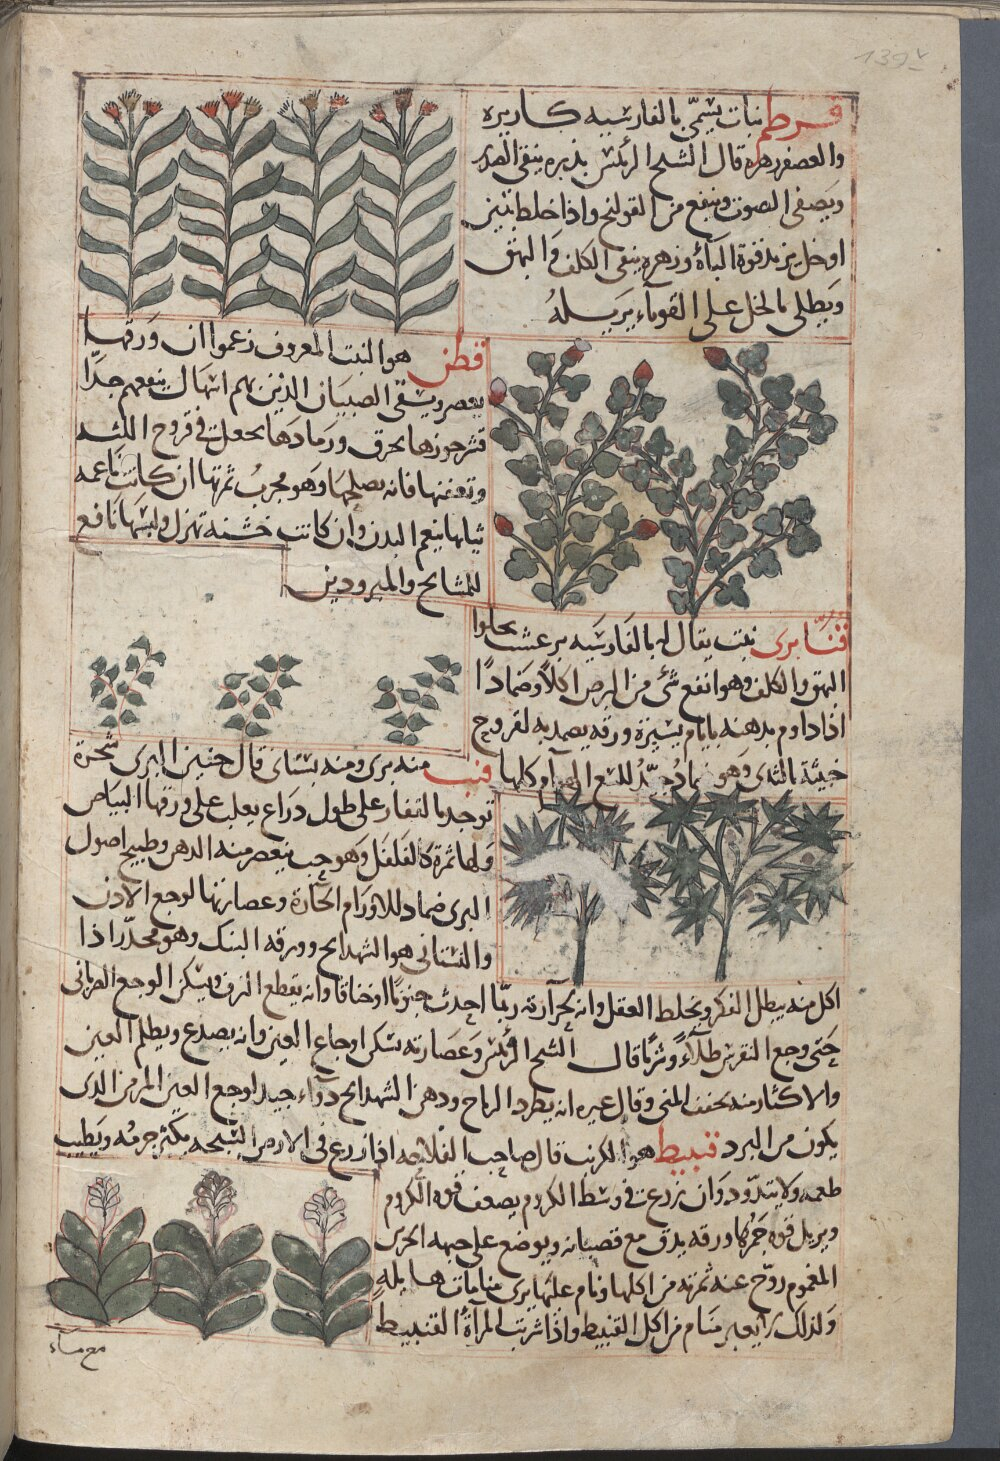 139v
قرطم نبات يسمّى بالفارسيه كاريره
والعصفر زهره قال الشيخ الرئيس بذره ينقى الصدر
ويصفى الصوت وينفع من القولنج واذا خلط بتين
او خل يزيد قوة الباءة وزهره ينقى الكلف والبهق
ويطلى بالخل على القوباء يزيله
قطن هو النبت المعروف زعموا ان ورقها
يعصر ويسقى الصبيان الذين بهم اسهال ينفعهم جدّا
قشر جوزها يحرق ورمادها يجعل فى قروح اللثه
وتعفنها فانه يصلحها وهو مجرب ثمرتها ان كانت ناعمه
ثيابها ينعم البدن وان كانت خشنه تهزل ولبسها نافع
للمشايخ والمبرودين
قنّابرى نبت يقال له بالفارسيه برغشت يجلوا
البهق والكلف وهو انفع شئ من البرص اكلاً وضمادًا
اذا داوم بدهنه بايام يسيرة ورقه يضمد به لقروح
خبيثة بالثدى وهو ضماد جيّد للسع الهوام وكلها
قنب منه برى ومنه بستانى قال حنين البرى شجرة
توجد بالقفار على طول ذراع يغلب على ورقها البياض
ولها ثمرة كالفلفل وهو حب ينعصر منه الدهن وطبيخ اصول
البرى ضماد للاورام الحارّة وعصارتها لوجع الاذن
والبستانى هو الشهدانج وورقه البنك وهو مخدّر اذا
اكل منه يبطل الفكر ويخلط العقل وانه بحرارته ربّما احدث جنونًا او خناقا وانه يقطع النزف ويسكن الوجع الضربانى
حتى وجع النقرس طلاءً وشربًا قال الشيخ الرئيس وعصارته تسكن اوجاع العين وانه يصدع ويظلم العين
والاكثار منه يجفف المنى وقال غيره انه يطرد الرياح ودهن الشهدانج دواء جيد لوجع العين المزمن الذى
يكون من البرد قنبيط هو الكرنب قال صاحب الفلاحه اذا زرع فى الارض السبخه يكثر جرمه ويطيب
طعمه ولا يتدوّد وان زرعت فى وسط الكروم يضعف قوه الكروم
ويزيل قوة خمرها ورقه يدق مع قضبانه ويوضع على جبهه الحزين
المغموم روّح عنه ثمرته من اكلها ونام عليها يرى منامات هايله
ولذلك لا يعبر منام من اكل القنبيط واذا شربت المرأة القنبيط
مع ماء